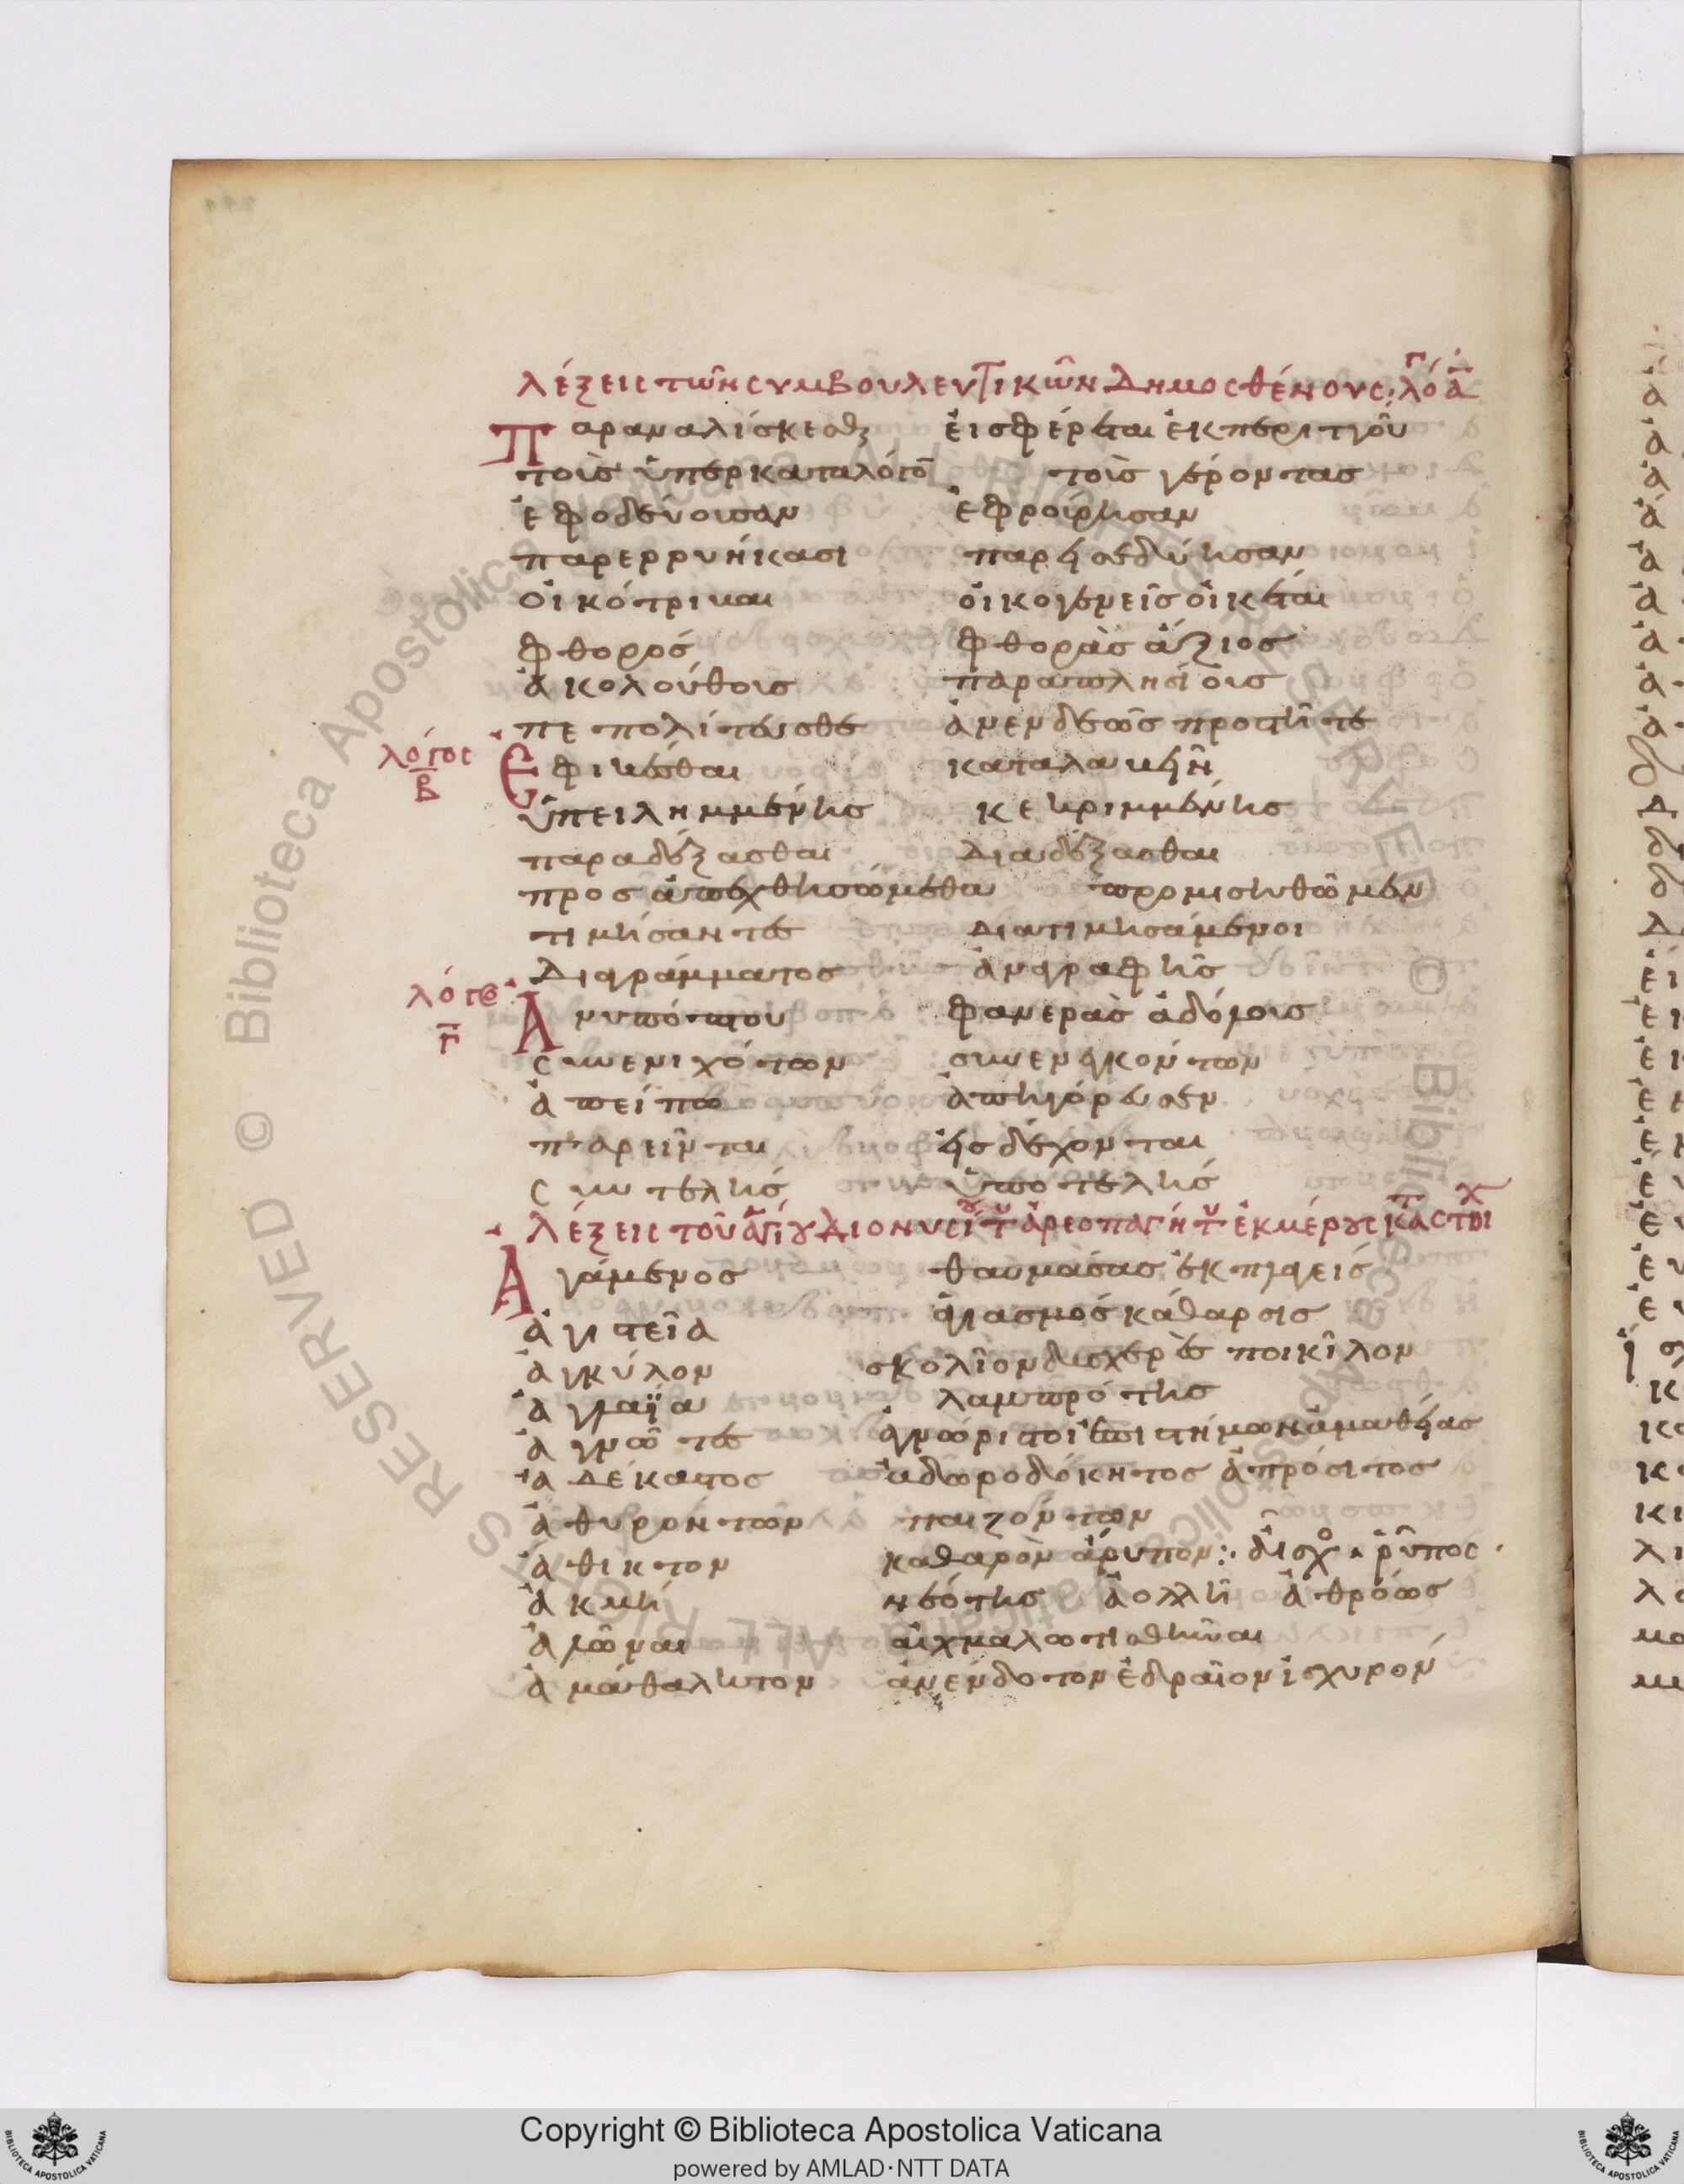 λέξεις τῶν συμβουλευτικῶν Δημοσθένους: λόγ α
Παραναλίσκεσθ εἰσφέρεται ἐκ περιττοῦ
τοῖς ὑπερ καταλόγου τοῖς γέροντας
ἐφοδεύουσαν ἐφρούρησαν
παρερρυήκασι παρεισεδύησαν
οἰκότριναι οἰκογενεῖς οἰκέται
φθορός φθορᾶς ἄξιος
ἀκολούθοις παραπλησίοις
πεπολίτευσθε ἀνενδεῶς προστῆτε
λόγος β
Ἐφικέσθαι καταλαβεῖν
ὑπειλημμένης κεκριμμένης
παραδέξασθαι διαδέξασθαι
προσαπεχθησώμεθα
τιμήσαντες διατιμησάμενοι
διαγράμματος ἀναγραφῆς
λόγος γ
Ἀνυπόπτου φανερᾶς ἀδόλοις
συνενιχότων συνενεγκόντων
ἀπείπω ἀπηγόρευσεν
παρεῖνται εἰσδέχονται
συντελής ὑποτελής
λέξεις τοῦ ἁγίου Διονυσίου τοῦ ἀρεοπαγίτου ἐκ μέρους κατὰ στοιχ
Ἀγάμενος θαυμάσας ἐκπλαγείς
ἁγιστεία ἁγιασμός κάθαρσις
ἀγκύλον σκολιὸν δυσχερὲς ποικίλον
ἀγλαΐα λαμπρότης
ἀγνῶτες ἀγνώριστοι ἐπιστήμων ἀμαθείας
ἀδέκαστος ἀδωροδόκητος ἀπρόσιτος
ἀθυρόντων παιζόντων
ἄθικτον καθαρὸν ἄρυπον: αἶσχος ῥύπος
ἀκμή νεότης ἀολλῆ ἀθρόως
ἁλῶναι αἰχμαλωτισθῆναι
ἀμάθαλητον ἀνένδοτον ἑδραῖον ἰσχυρόν
Copyright © Biblioteca Apostolica Vaticana
powered by AMLAD·NTT DATA